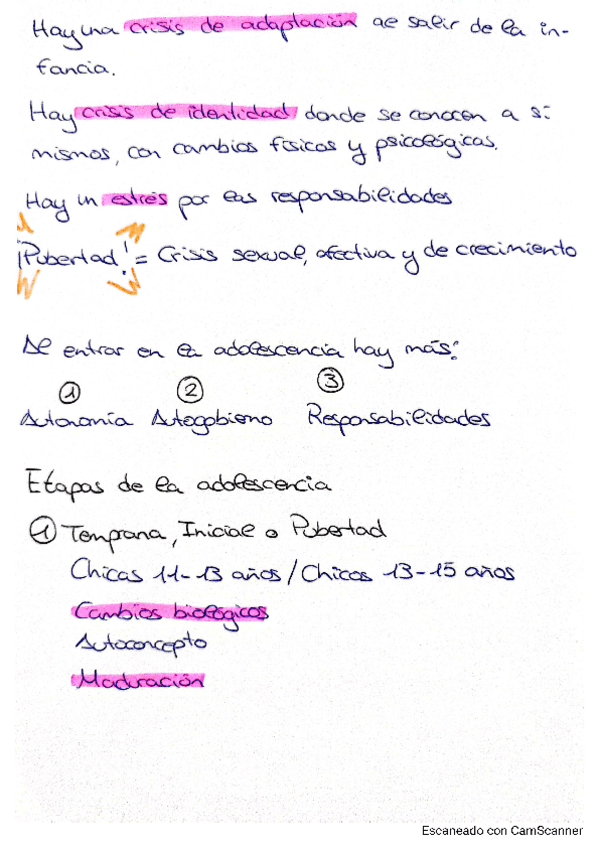 Hay una crisis de adaptación al salir de la in-
fancia.
Hay crisis de identidad donde se conocen a sí
mismos, con cambios físicos y psicológicas.
Hay un estrés por las responsabilidades
¡Pubertad! = Crisis sexual, afectiva y de crecimiento
Al entrar en la adolescencia hay más:
① ② ③
Autonomía Autogobierno Responsabilidades
Etapas de la adolescencia
① Temprana, Inicial o Pubertad
Chicas 11-13 años / Chicos 13-15 años
Cambios biológicos
Autoconcepto
Maduración
Escaneado con CamScanner